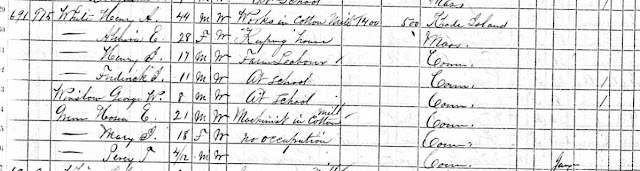 At School Mass
691 975 White Henry A. 44 M W Works in Cotton Mill 1400 500 Rhode Island
— E. 28 F W Keeping house Mass.
— Henry 17 M W Farm Labour Conn. 1
— Fredrick 11 M W At School Conn. 1
Winslow George W. 8 M W At School Conn. 1
E. 21 M W Machinist in Cotton mill Conn.
— Mary 18 F W No occupation Conn.
— Percy 4/12 M W Conn.